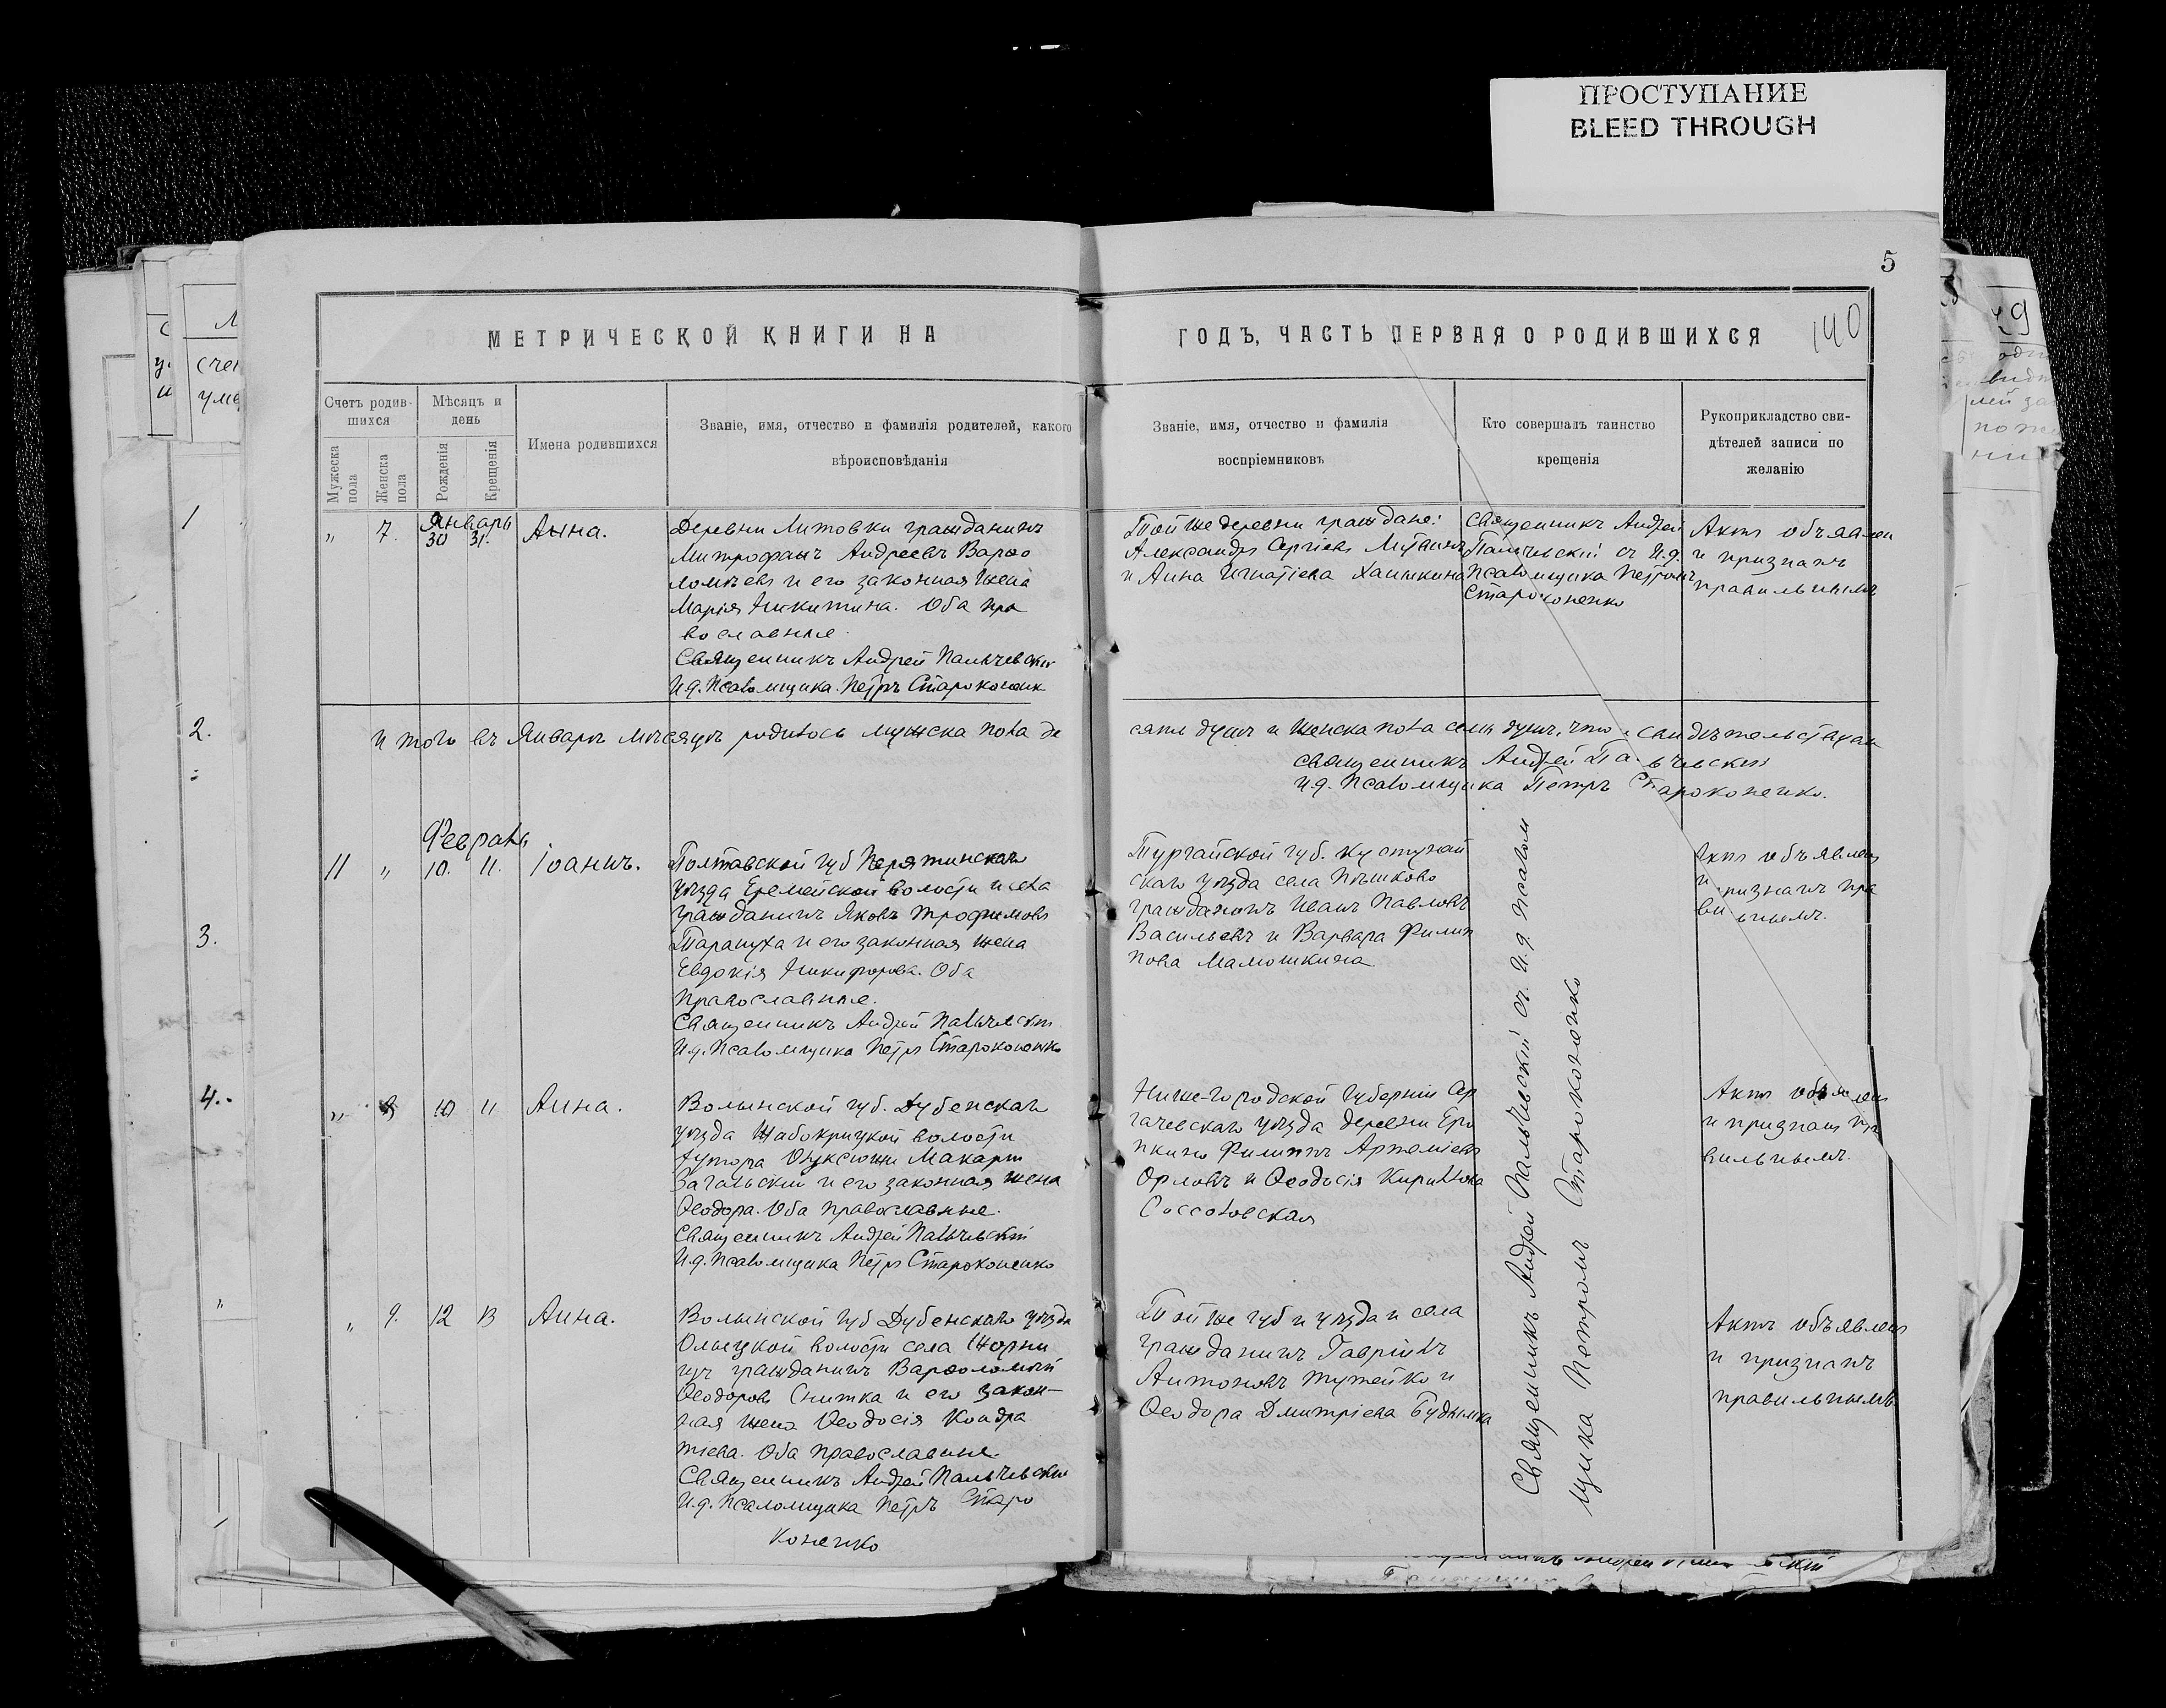 ПРОСТУПАНИЕ
BLEED THROUGH
5
140
МЕТРИЧЕСКОЙ КНИГИ НА
ГОДЪ, ЧАСТЬ ПЕРВАЯ О РОДИВШИХСЯ
Счетъ родив-
шихся
Мужеска
пола
Женска
пола
Мѣсяцъ и
день
Рожденія
Крещенія
Имена родившихся
Званіе, имя, отчество и фамилія родителей, какого
вѣроисповѣданія
Званіе, имя, отчество и фамилія
воспріемниковъ
Кто совершалъ таинство
крещенія
Рукоприкладство сви-
дѣтелей записи по
желанію
Январь
" 7. 30 31. Анна.
Деревни Литовки гражданинъ
Митрофанъ Андреевъ Варѳо
ломѣевъ и его законная жена
Марія Никитина. Оба пра
вославные.
Священникъ Андрей Пальчевскій
И.д. Псаломщика Петръ
Той же деревни граждане:
Александръ Сергіевъ
и Анна Игнатіева Ханикина
Священникъ Андрей
Пальчевскій съ И.д.
Псаломщика Петромъ
Староконенко
Актъ объявленъ
и признанъ
правильнымъ
И того въ Январѣ мѣсяцѣ родилось мужска пола де
сять душъ и женска пола семь душъ, что и свидѣтельствуемъ
священникъ Андрей Пальчевскій
И.д. Псаломщика Петръ Староконенко.
Февраль
11 " 10. 11. Іоаннъ.
Полтавской губ Пирятинскаго
уѣзда волости и села
гражданинъ Яковъ Трофимовъ
Тарануха и его законная жена
Евдокія Никифорова. Оба
Православные.
Священникъ Андрей Пальчевскій
И.д. Псаломщика Петръ Староконенко
Тургайской губ. Кустанай
скаго уѣзда села Пѣшково
гражданинъ Иванъ Павловъ
Васильевъ и Варвара Филип
пова Мамошкина
Актъ объявленъ
и признанъ пра
вильнымъ.
" 8 10 11 Анна.
Волынской губ. Дубенскаго
уѣзда волости
хутора Макарій
Загальскій и его законная жена
Ѳеодора. Оба православные.
Священникъ Андрей Пальчевскій
И.д. Псаломщика Петръ Староконенко
Ниже-городской Губерніи Сер
гачевскаго уѣзда деревни Еро
пкино Филиппъ Артеміевъ
Орловъ и Ѳеодосія Кириллова
Соссоловская
Актъ объявленъ
и признанъ пра
вильнымъ.
" 9. 12 13 Анна.
Волынской губ Дубенскаго уѣзда
Олыцкой волости села
гражданинъ Варѳоломей
Ѳеодоровъ Снитка и его закон-
ная жена Ѳеодосія Кондра
тіева. Оба православные.
Священникъ Андрей Пальчевскій
И.д. Псаломщика Петръ Старо
коненко
Той же губ и уѣзда и села
гражданинъ Гавріилъ
Антоновъ Тутейко и
Ѳеодора Дмитріева
Актъ объявленъ
и признанъ
правильнымъ
Священникъ Андрей Пальчевскій съ И.д. Псалом
щика Петромъ Староконенко
1
2.
3.
4.